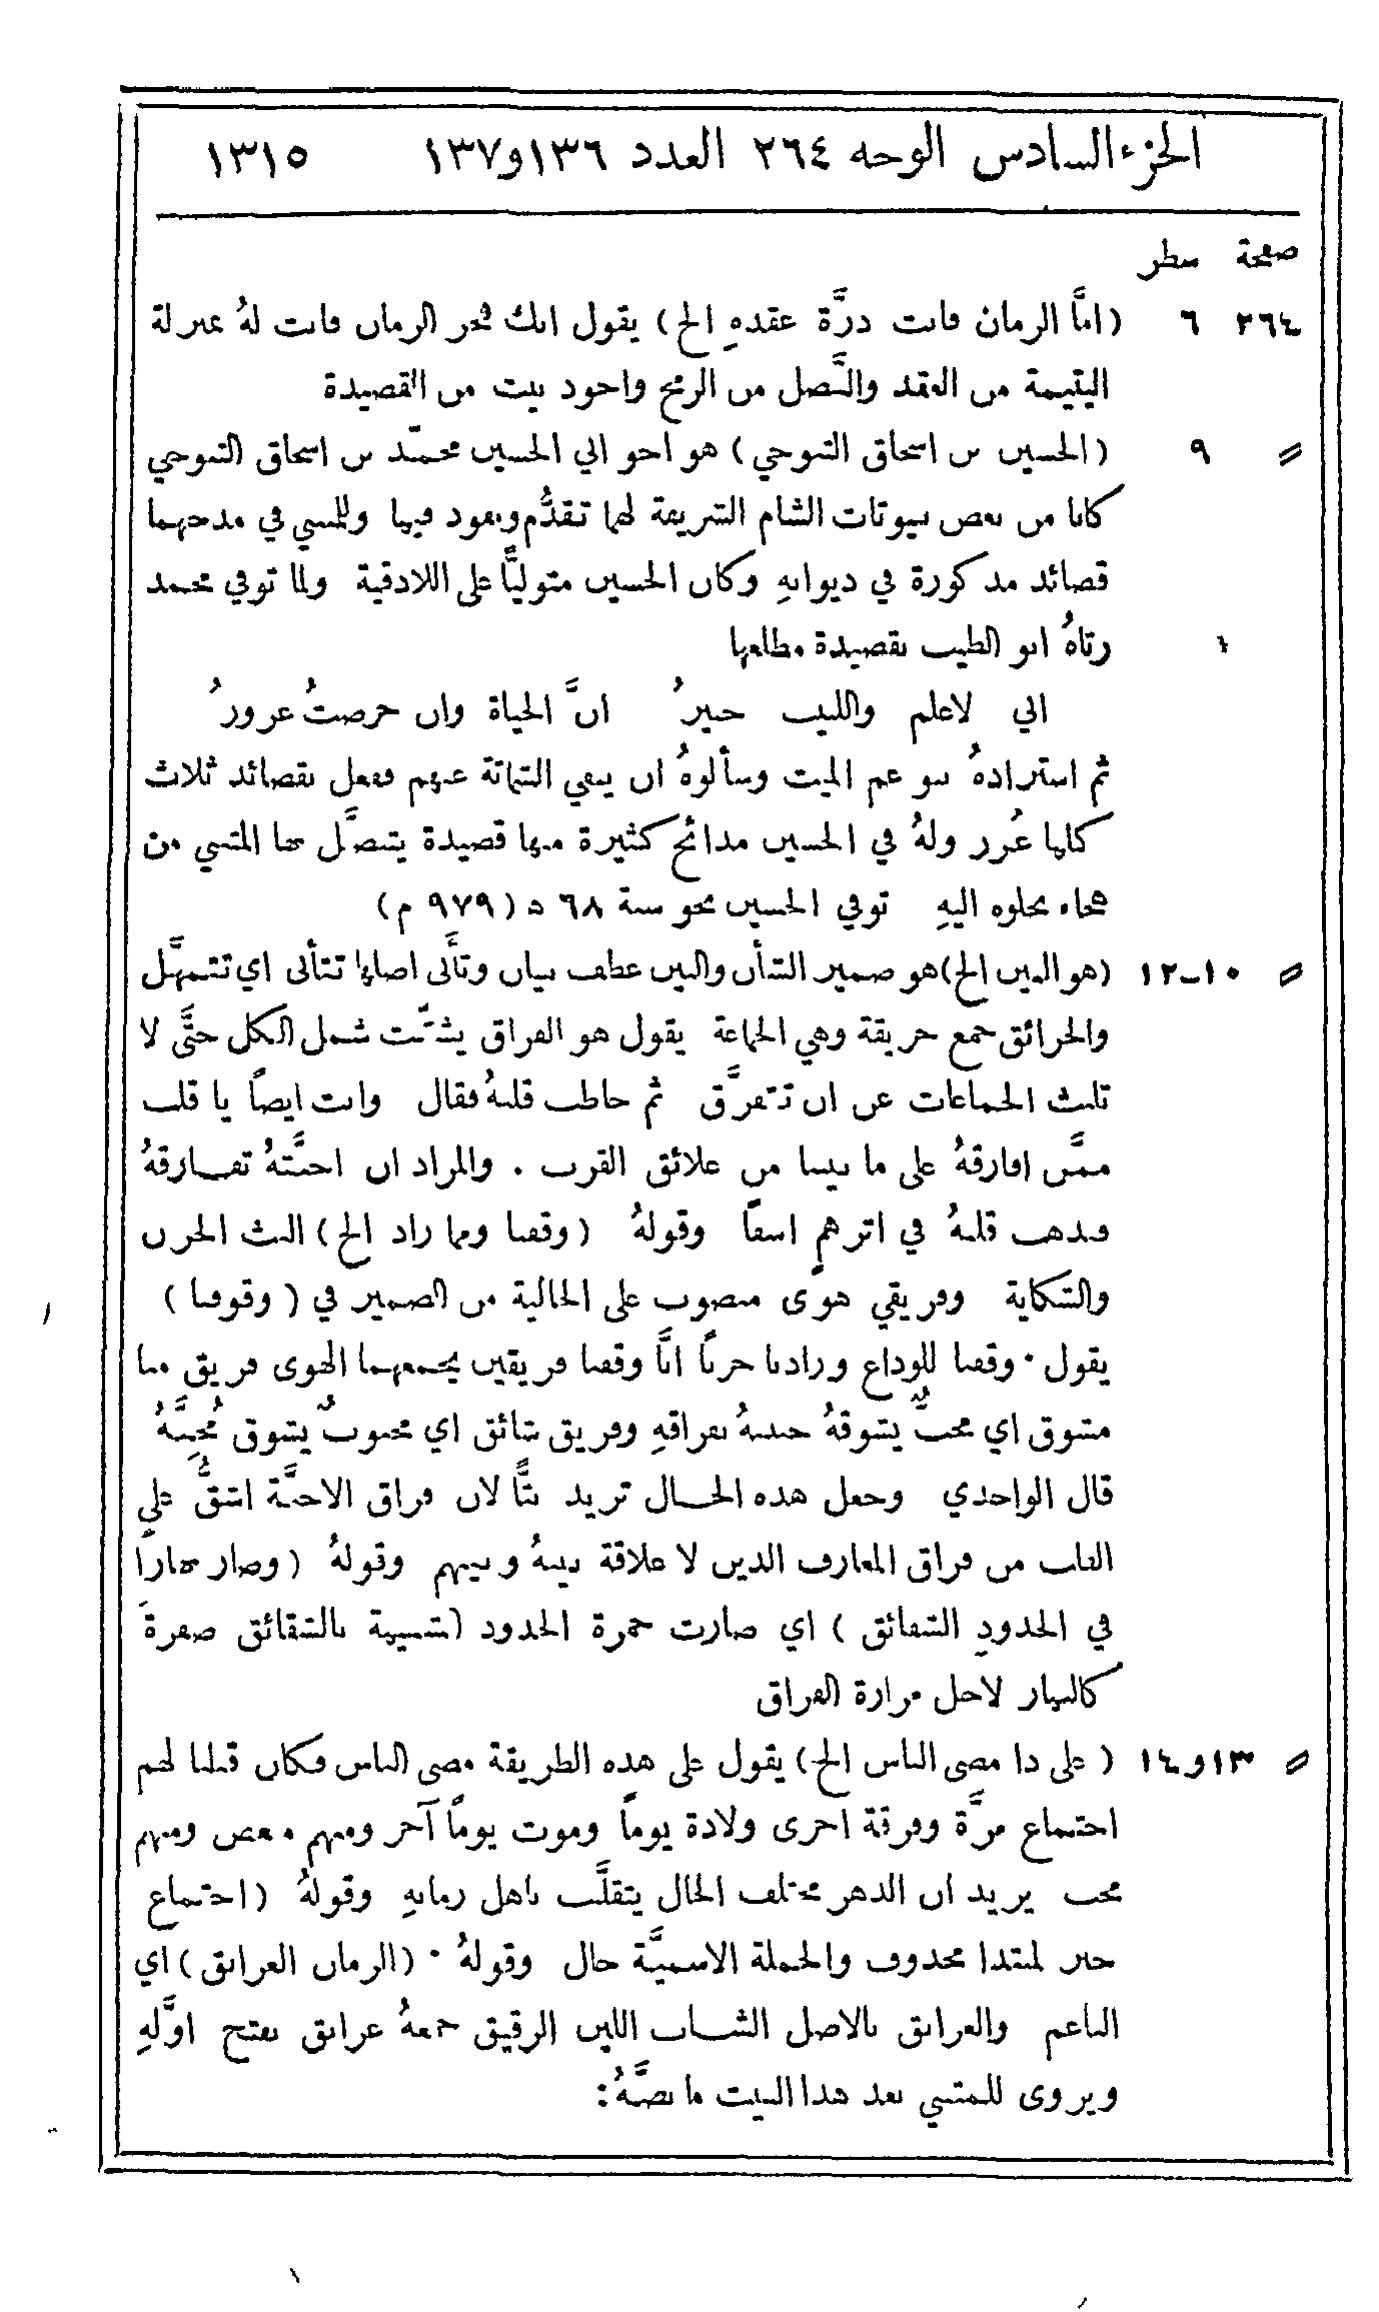 الجزء السادس الوجه ٢٦٤ العدد ١٣٦و١٣٧ ١٣١٥
صفحة سطر
٢٦٤ ٦ (امَّا الزمان فانت درَّة عقدهِ الخ) يقول انك فخر الزمان فانت لهُ بمنزلة
اليتيمة من العقد والنَّصل من الرمح واجود بيت من القصيدة
〃 ٩ (الحسين بن اسحاق التنوخي) هو اخو ابي الحسين محمَّد بن اسحاق التنوخي
كانا من بعض بيوتات الشام الشريفة لهما تقدُّم ونفوذ فيها وللمتنبي في مدحهما
قصائد مذكورة في ديوانهِ وكان الحسين متوليًّا على اللاذقية ولما توفي محمد
رثاهُ ابو الطيب بقصيدة مطلعها
اني لاعلم واللبيب خبيرُ انَّ الحياة وان حرصتُ غرورُ
ثم استزادهُ بنو عم الميت وسألوهُ ان ينفي الشماتة عنهم ففعل بقصائد ثلاث
كلها غُرر ولهُ في الحسين مدائح كثيرة منها قصيدة يتنصَّل بها المتنبي من
هجاء نحلوه اليهِ توفي الحسين نحو سنة ٦٨ ه (٩٧٩ م)
〃 ١٠-١٢ (هو البين الخ) هو ضمير الشأن والبين عطف بيان وتأَنَّى اصلها تتأنى اي تتمهَّل
والحزائق جمع حزيقة وهي الجماعة يقول هو الفراق يشتّت شمل الكل حتَّى لا
تلبث الجماعات عن ان تتفرَّق ثم خاطب قلبهُ فقال وانت ايضًا يا قلب
ممَّن افارقهُ على ما بيننا من علائق القرب . والمراد ان احبَّتهُ تفارقهُ
فيذهب قلبهُ في اثرهم اسفًا وقولهُ (وقفنا ومما زاد الخ) البث الحزن
والشكاية وفريقي هوًى منصوب على الحالية من الضمير في (وقوفنا)
يقول . وقفنا للوداع وزادنا حزنًا انَّا وقفنا فريقين يجمعهما الهوى فريق منا
مشوق اي محبٌّ يشوقهُ حبيبهُ بفراقهِ وفريق شائق اي محبوبٌ يشوق مُحِبَّهُ
قال الواحدي وجعل هذه الحال تزيد بثًّا لان فراق الاحبَّة اشقُّ على
القلب من فراق المعارف الذين لا علاقة بينهُ وبينهم وقولهُ (وصار بهارًا
في الخدودِ الشقائق) اي صارت حمرة الخدود الشبيهة بالشقائق صفرةً
كالبهار لاجل مرارة الفراق
〃 ١٣و١٤ (على ذا مضى الناس الخ) يقول على هذه الطريقة مضى الناس فكان قبلنا لهم
اجتماع مرَّة وفرقة اخرى ولادة يومًا وموت يومًا آخر ومنهم مبغض ومنهم
محب يريد ان الدهر مختلف الحال يتقلَّب باهل زمانهِ وقولهُ (اجتماع
خبر لمبتدا محذوف والجملة الاسميَّة حال وقولهُ . (الزمان الغرانق) اي
الناعم والغرانق بالاصل الشاب اللين الرقيق جمعهُ غرانق بفتح اوَّلهِ
ويروى للمتنبي بعد هذا البيت ما نصَّهُ: